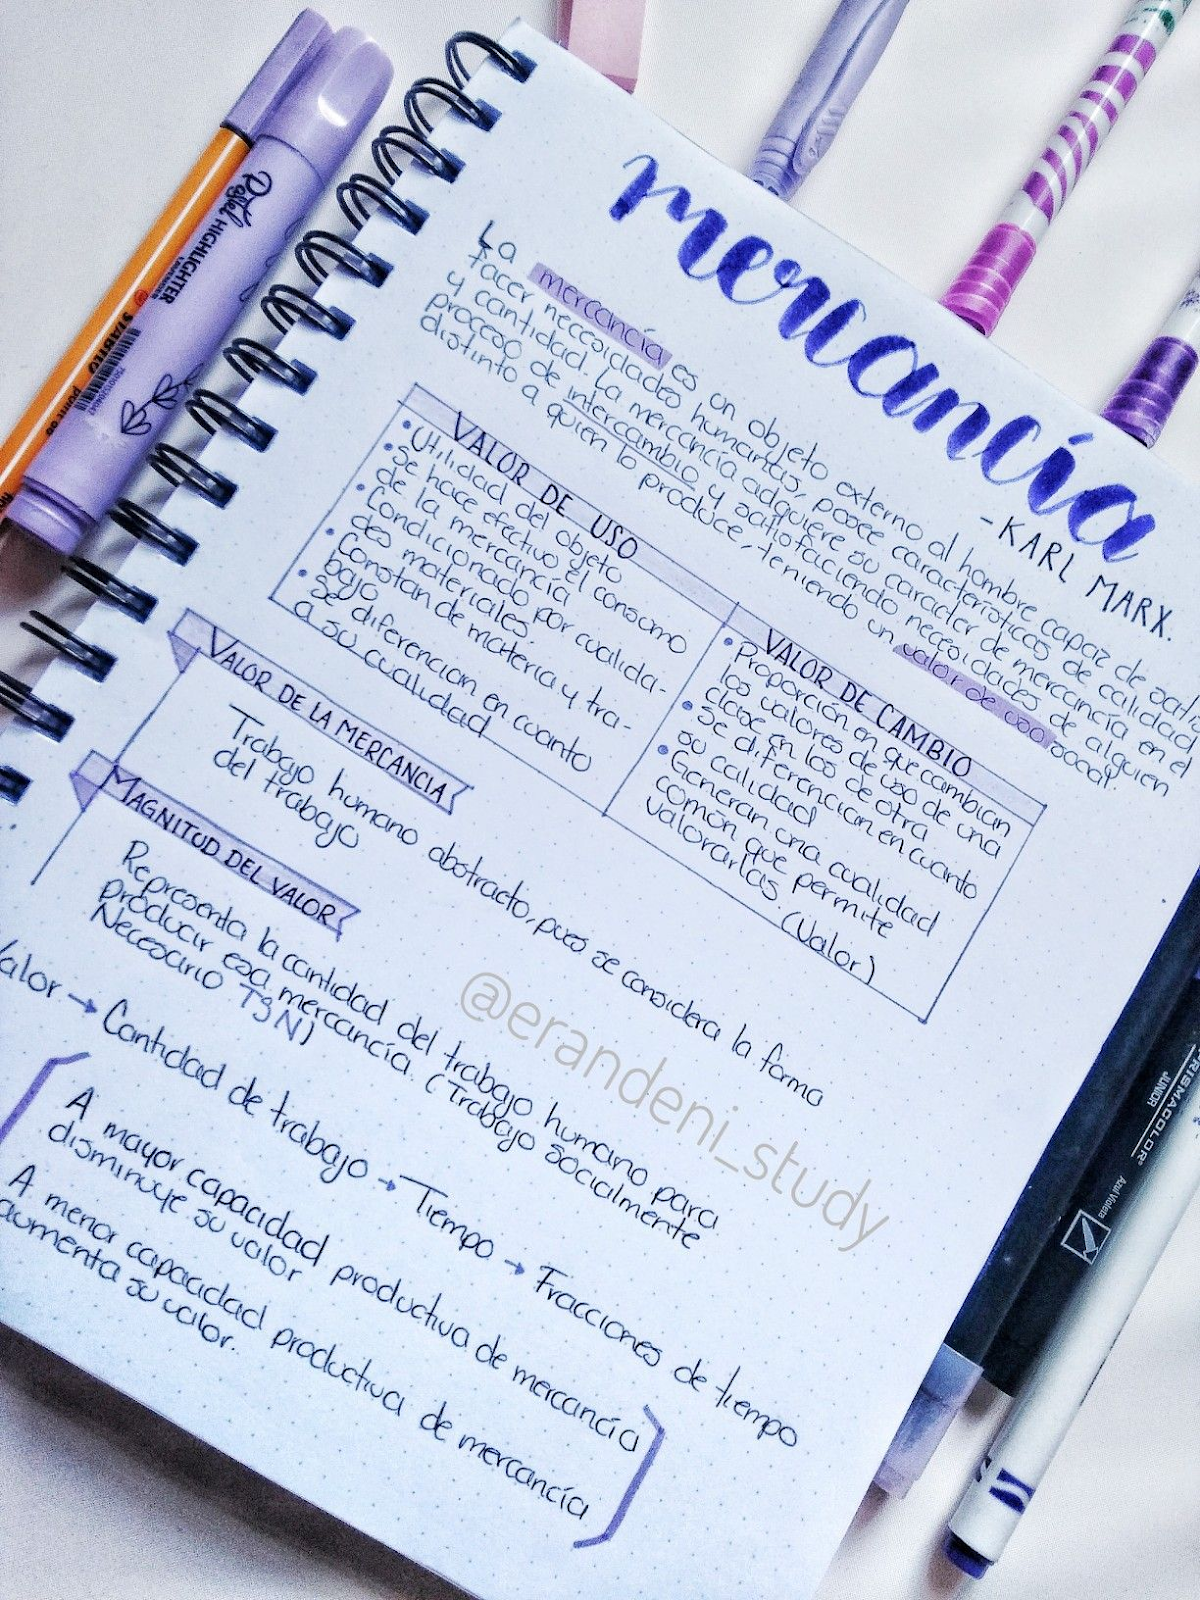 mercancía
-KARL MARX.
La mercancía es un objeto externo al hombre capaz de satis
facer necesidades humanas, posee características de calidad
y cantidad. La mercancía adquiere su caracter de mercancía en el
proceso de intercambio y satisfaciendo necesidades de alguien
distinto a quien lo produce, teniendo un valor de uso social.
VALOR DE USO
• Utilidad del objeto
• Se hace efectivo el consumo
de la mercancía
• Condicionado por cualida-
des materiales.
• Constan de materia y tra-
bajo
• Se diferencian en cuanto
a su cualidad
VALOR DE CAMBIO
• Proporción en que cambian
los valores de uso de una
clase en los de otra
• Se diferencian en cuanto
su calidad
• Generan una cualidad
común que permite
valorarlas (Valor)
VALOR DE LA MERCANCIA
Trabajo humano abstracto, pues se considera la forma
del trabajo
MAGNITUD DEL VALOR
Representa la cantidad del trabajo humano para
producir esa mercancía. (Trabajo Socialmente
Necesario TSN)
Valor → Cantidad de trabajo → Tiempo → Fracciones de tiempo
A mayor capacidad productiva de mercancía
disminuye su valor
A menor capacidad productiva de mercancía
aumenta su valor.
@erandeni_study
Pastel HIGHLIGHTER
STABILO
point 88
PRISMACOLOR
JUNIOR
Azul Violeta